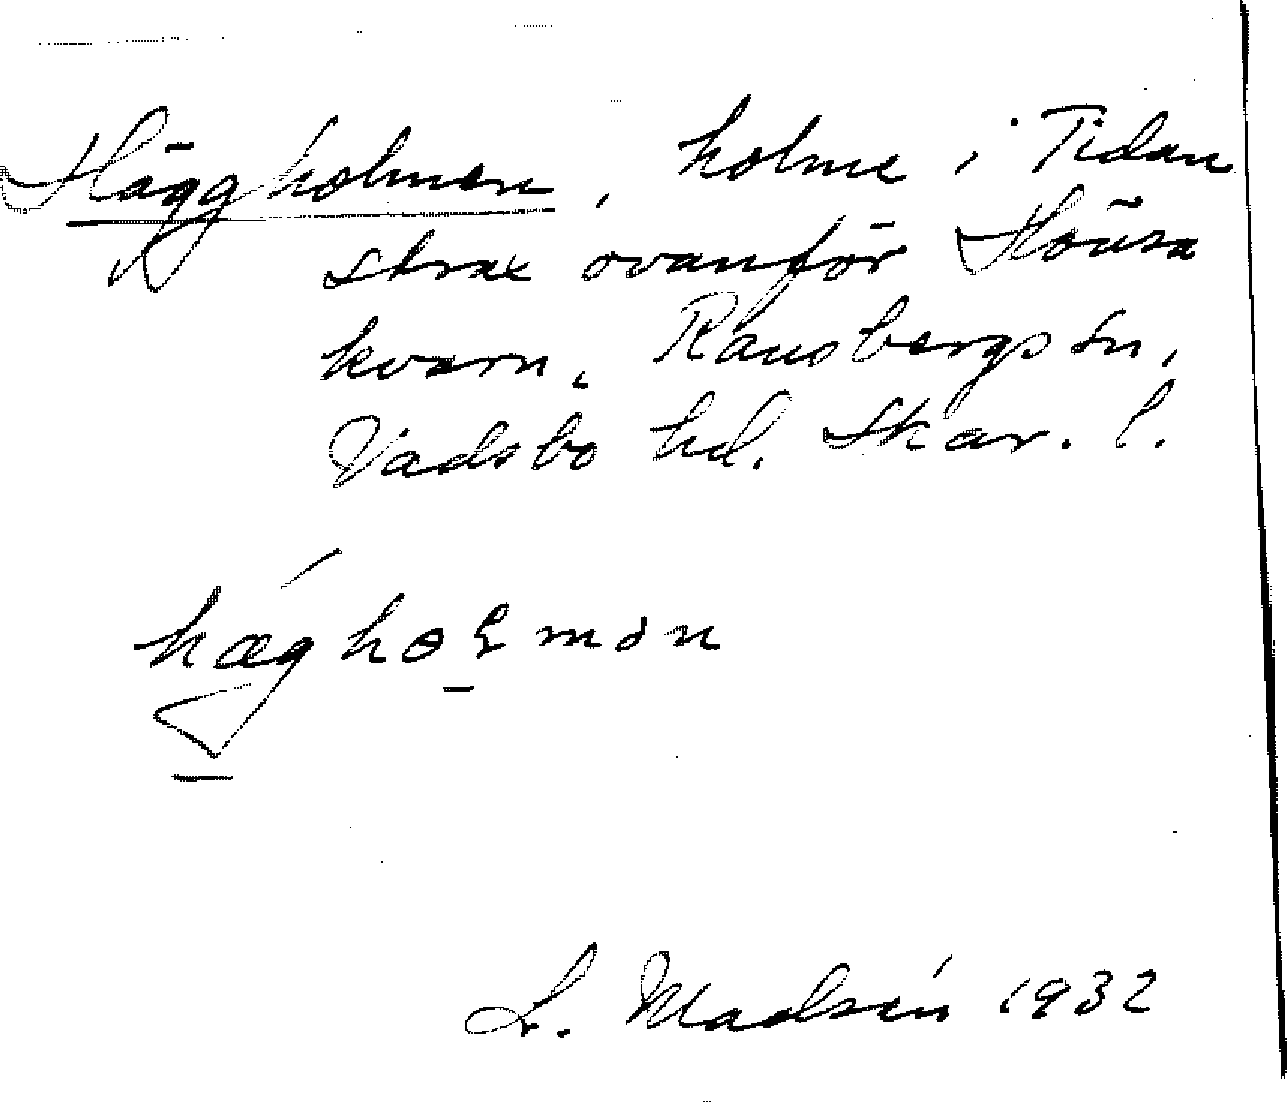 Häggholmen, holme i Tidan
strax ovanför Höura
kvarn, Ransbergs sn,
Vadsbo hd. Skar. l.
hægholmən
L. Madsén 1932